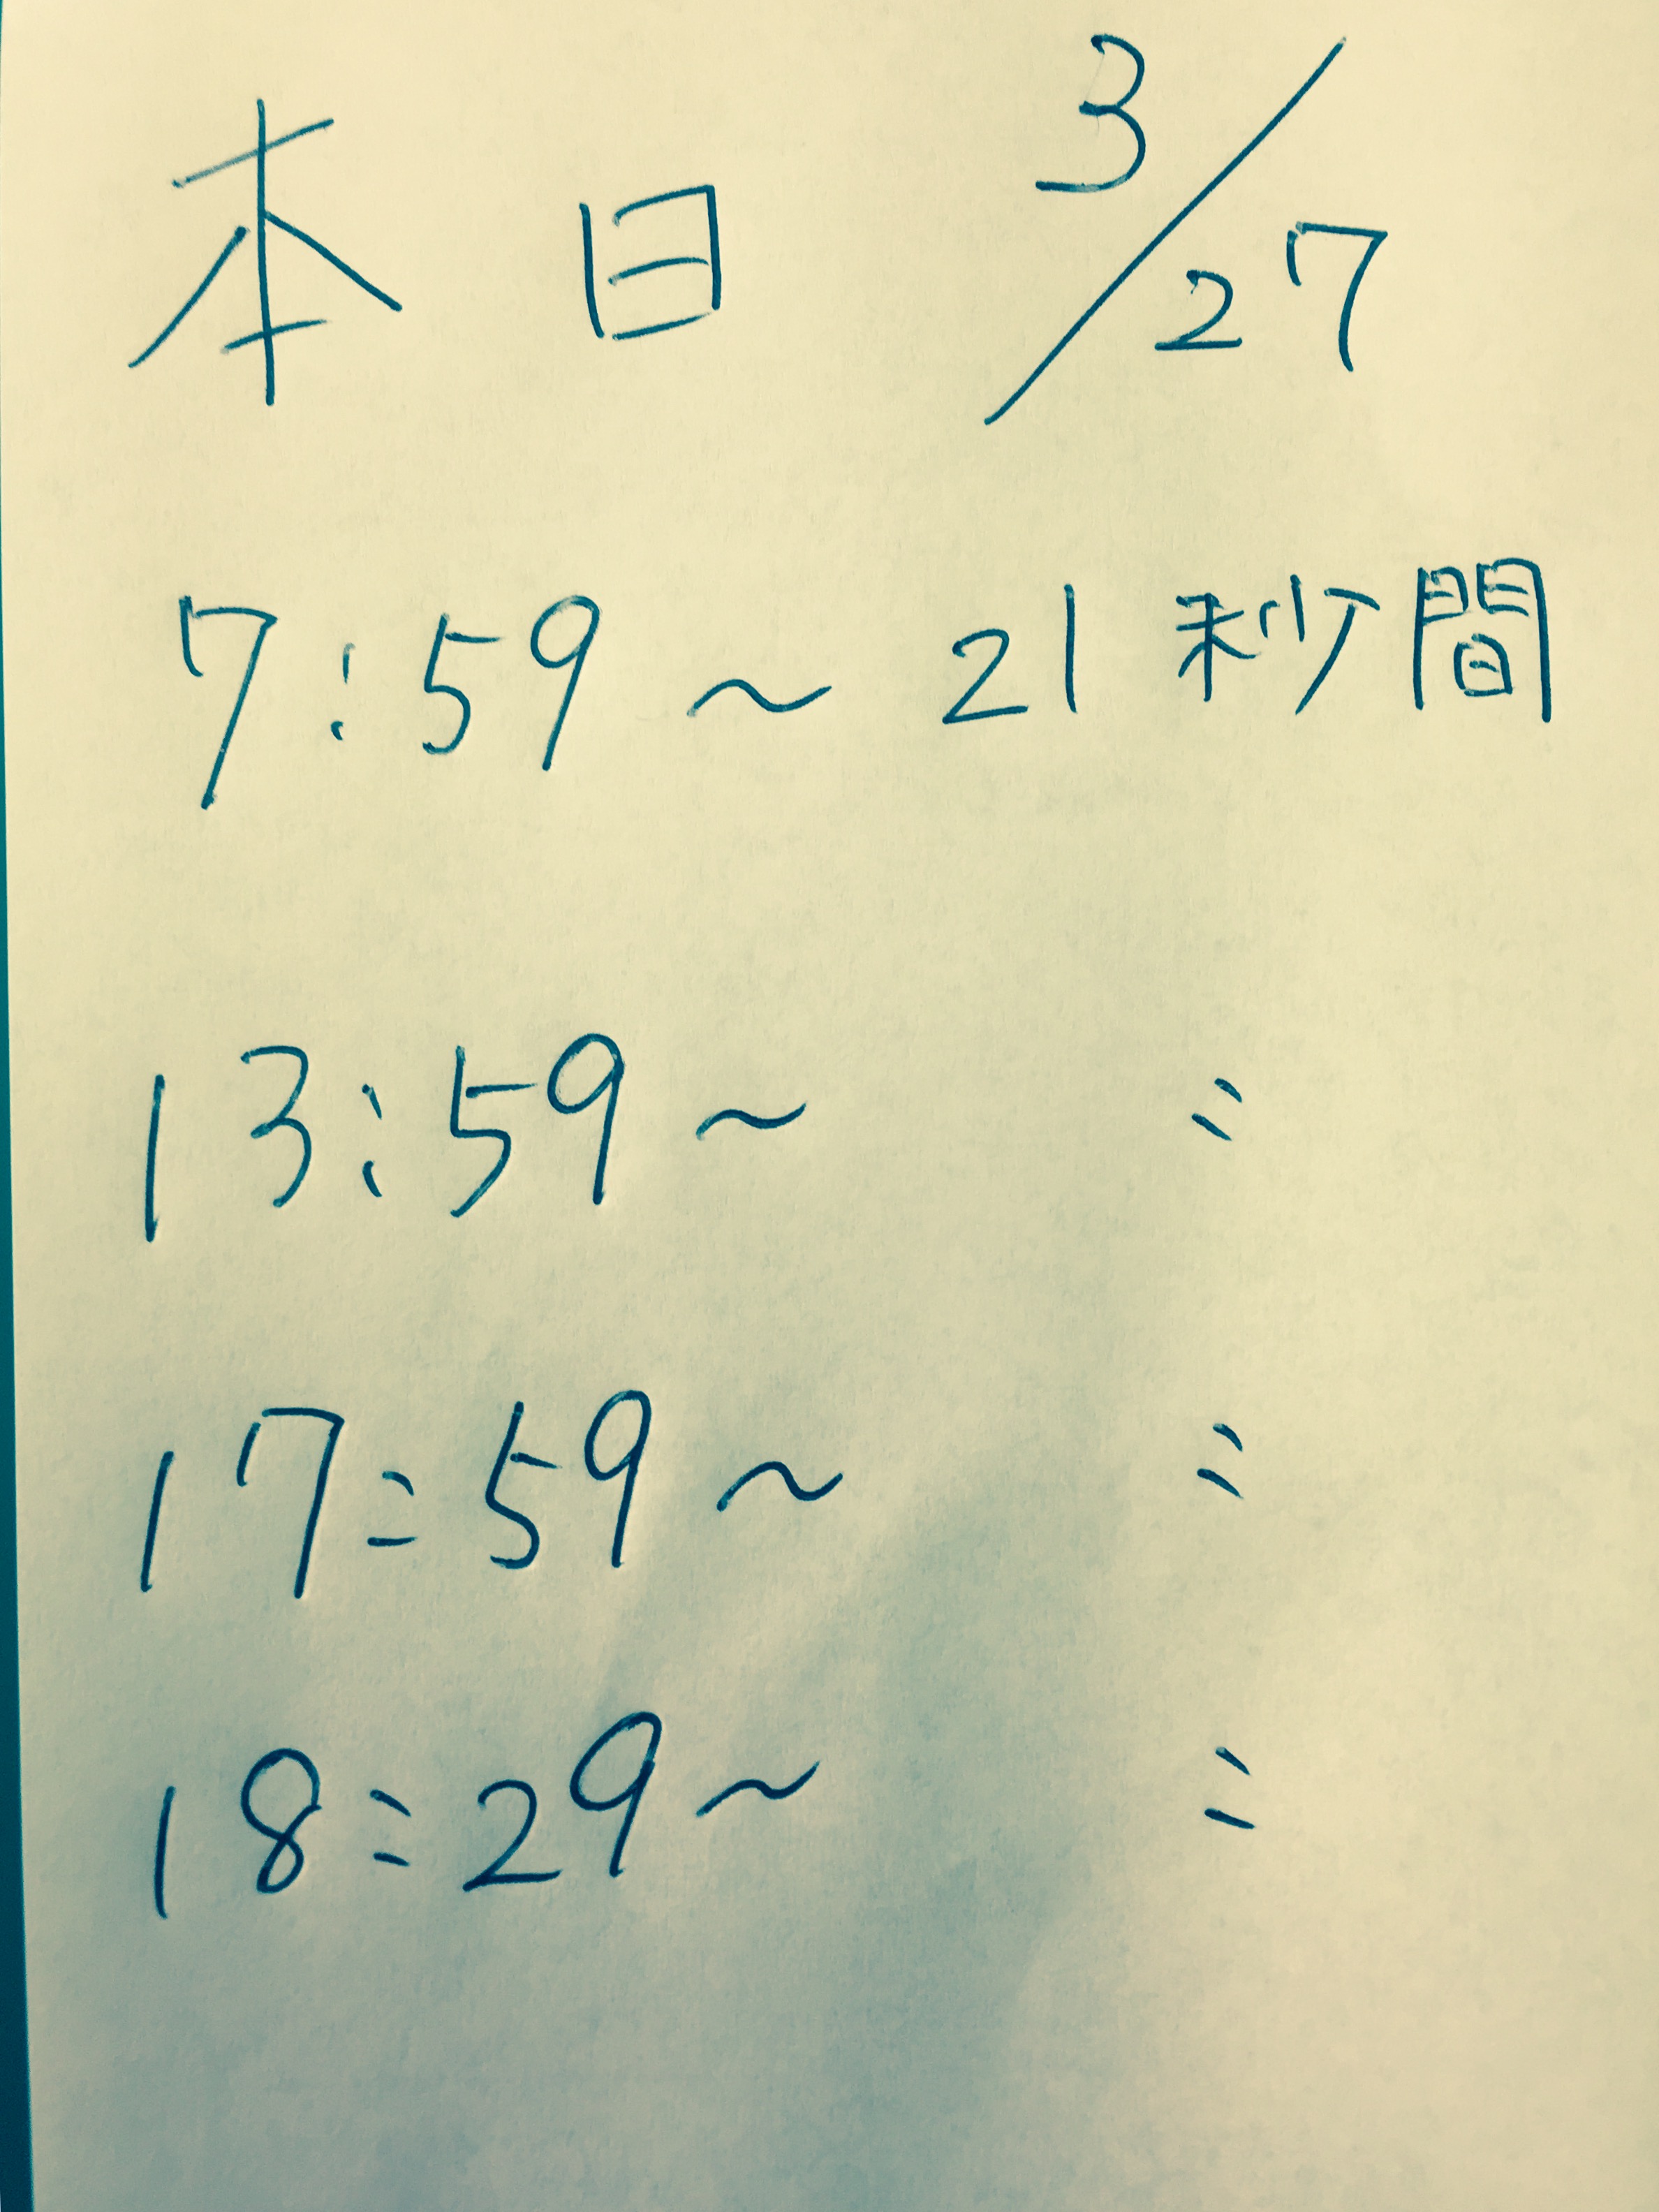 本日 3/27
7:59~ 21秒間
13:59~ 〃
17:59~ 〃
18:29~ 〃